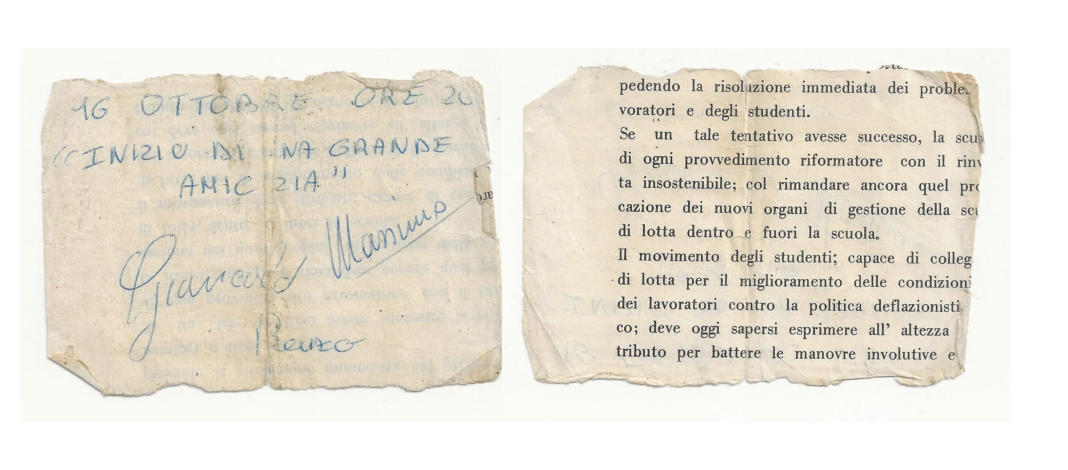 16 OTTOBRE ORE 20
"INIZIO DI 'NA GRANDE
AMICIZIA"
Giancarlo
Massimo
Renzo
pedendo la risoluzione immediata dei proble
voratori e degli studenti.
Se un tale tentativo avesse successo, la scu
di ogni provvedimento riformatore con il rinv
ta insostenibile; col rimandare ancora quel pro
cazione dei nuovi organi di gestione della scu
di lotta dentro e fuori la scuola.
Il movimento degli studenti; capace di colleg
di lotta per il miglioramento delle condizioni
dei lavoratori contro la politica deflazionisti
co; deve oggi sapersi esprimere all' altezza
tributo per battere le manovre involutive e